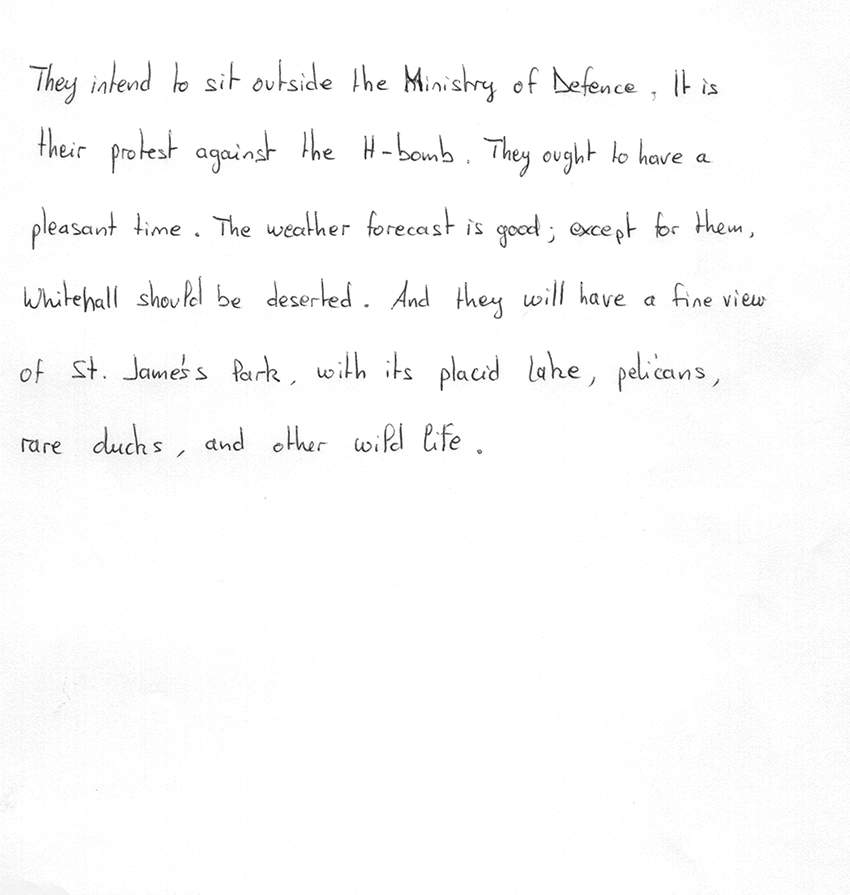 They intend to sit outside the Ministry of Defence, It is
their protest against the H-bomb. They ought to have a
pleasant time. The weather forecast is good; except for them,
Whitehall should be deserted. And they will have a fine view
of St. James's Park, with its placid lake, pelicans,
rare ducks, and other wild life.